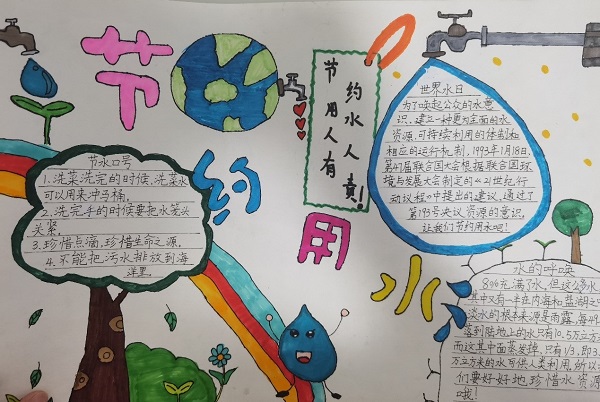 节
约
用
水
节约用水
人人有责!
节水口号
1.洗菜洗完的时候,洗菜水
可以用来冲马桶。
2.洗完手的时候要把水笼头
关紧。
3.珍惜点滴,珍惜生命之源。
4.不能把污水排放到海
洋里
世界水日
为了唤起公众的水意
识,建立一种更为全面的水
资源可持续利用的体制和
相应的运行机制,1993年1月18日,
第47届联合国大会根据联合国环
境与发展大会制定的《21世纪行
动议程》中提出的建议,通过了
第193号决议资源的意识,
让我们节约用水吧!
水的呼唤
充满了水,但这么多水
其中又有一半在内海和盐湖
淡水的根本来源是雨露,每
落到陆地上的水只有10.5万立方
而这其中面蒸发掉,只有1/3,即3.
万立方米的水可供人类利用,所以
们要好好地,珍惜水资源
哦!